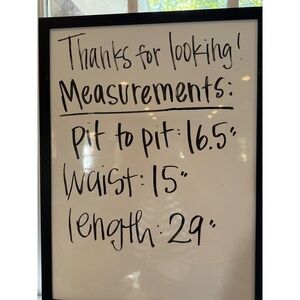 Thanks for looking!
Measurements:
Pit to pit: 16.5"
Waist: 15"
length: 29"